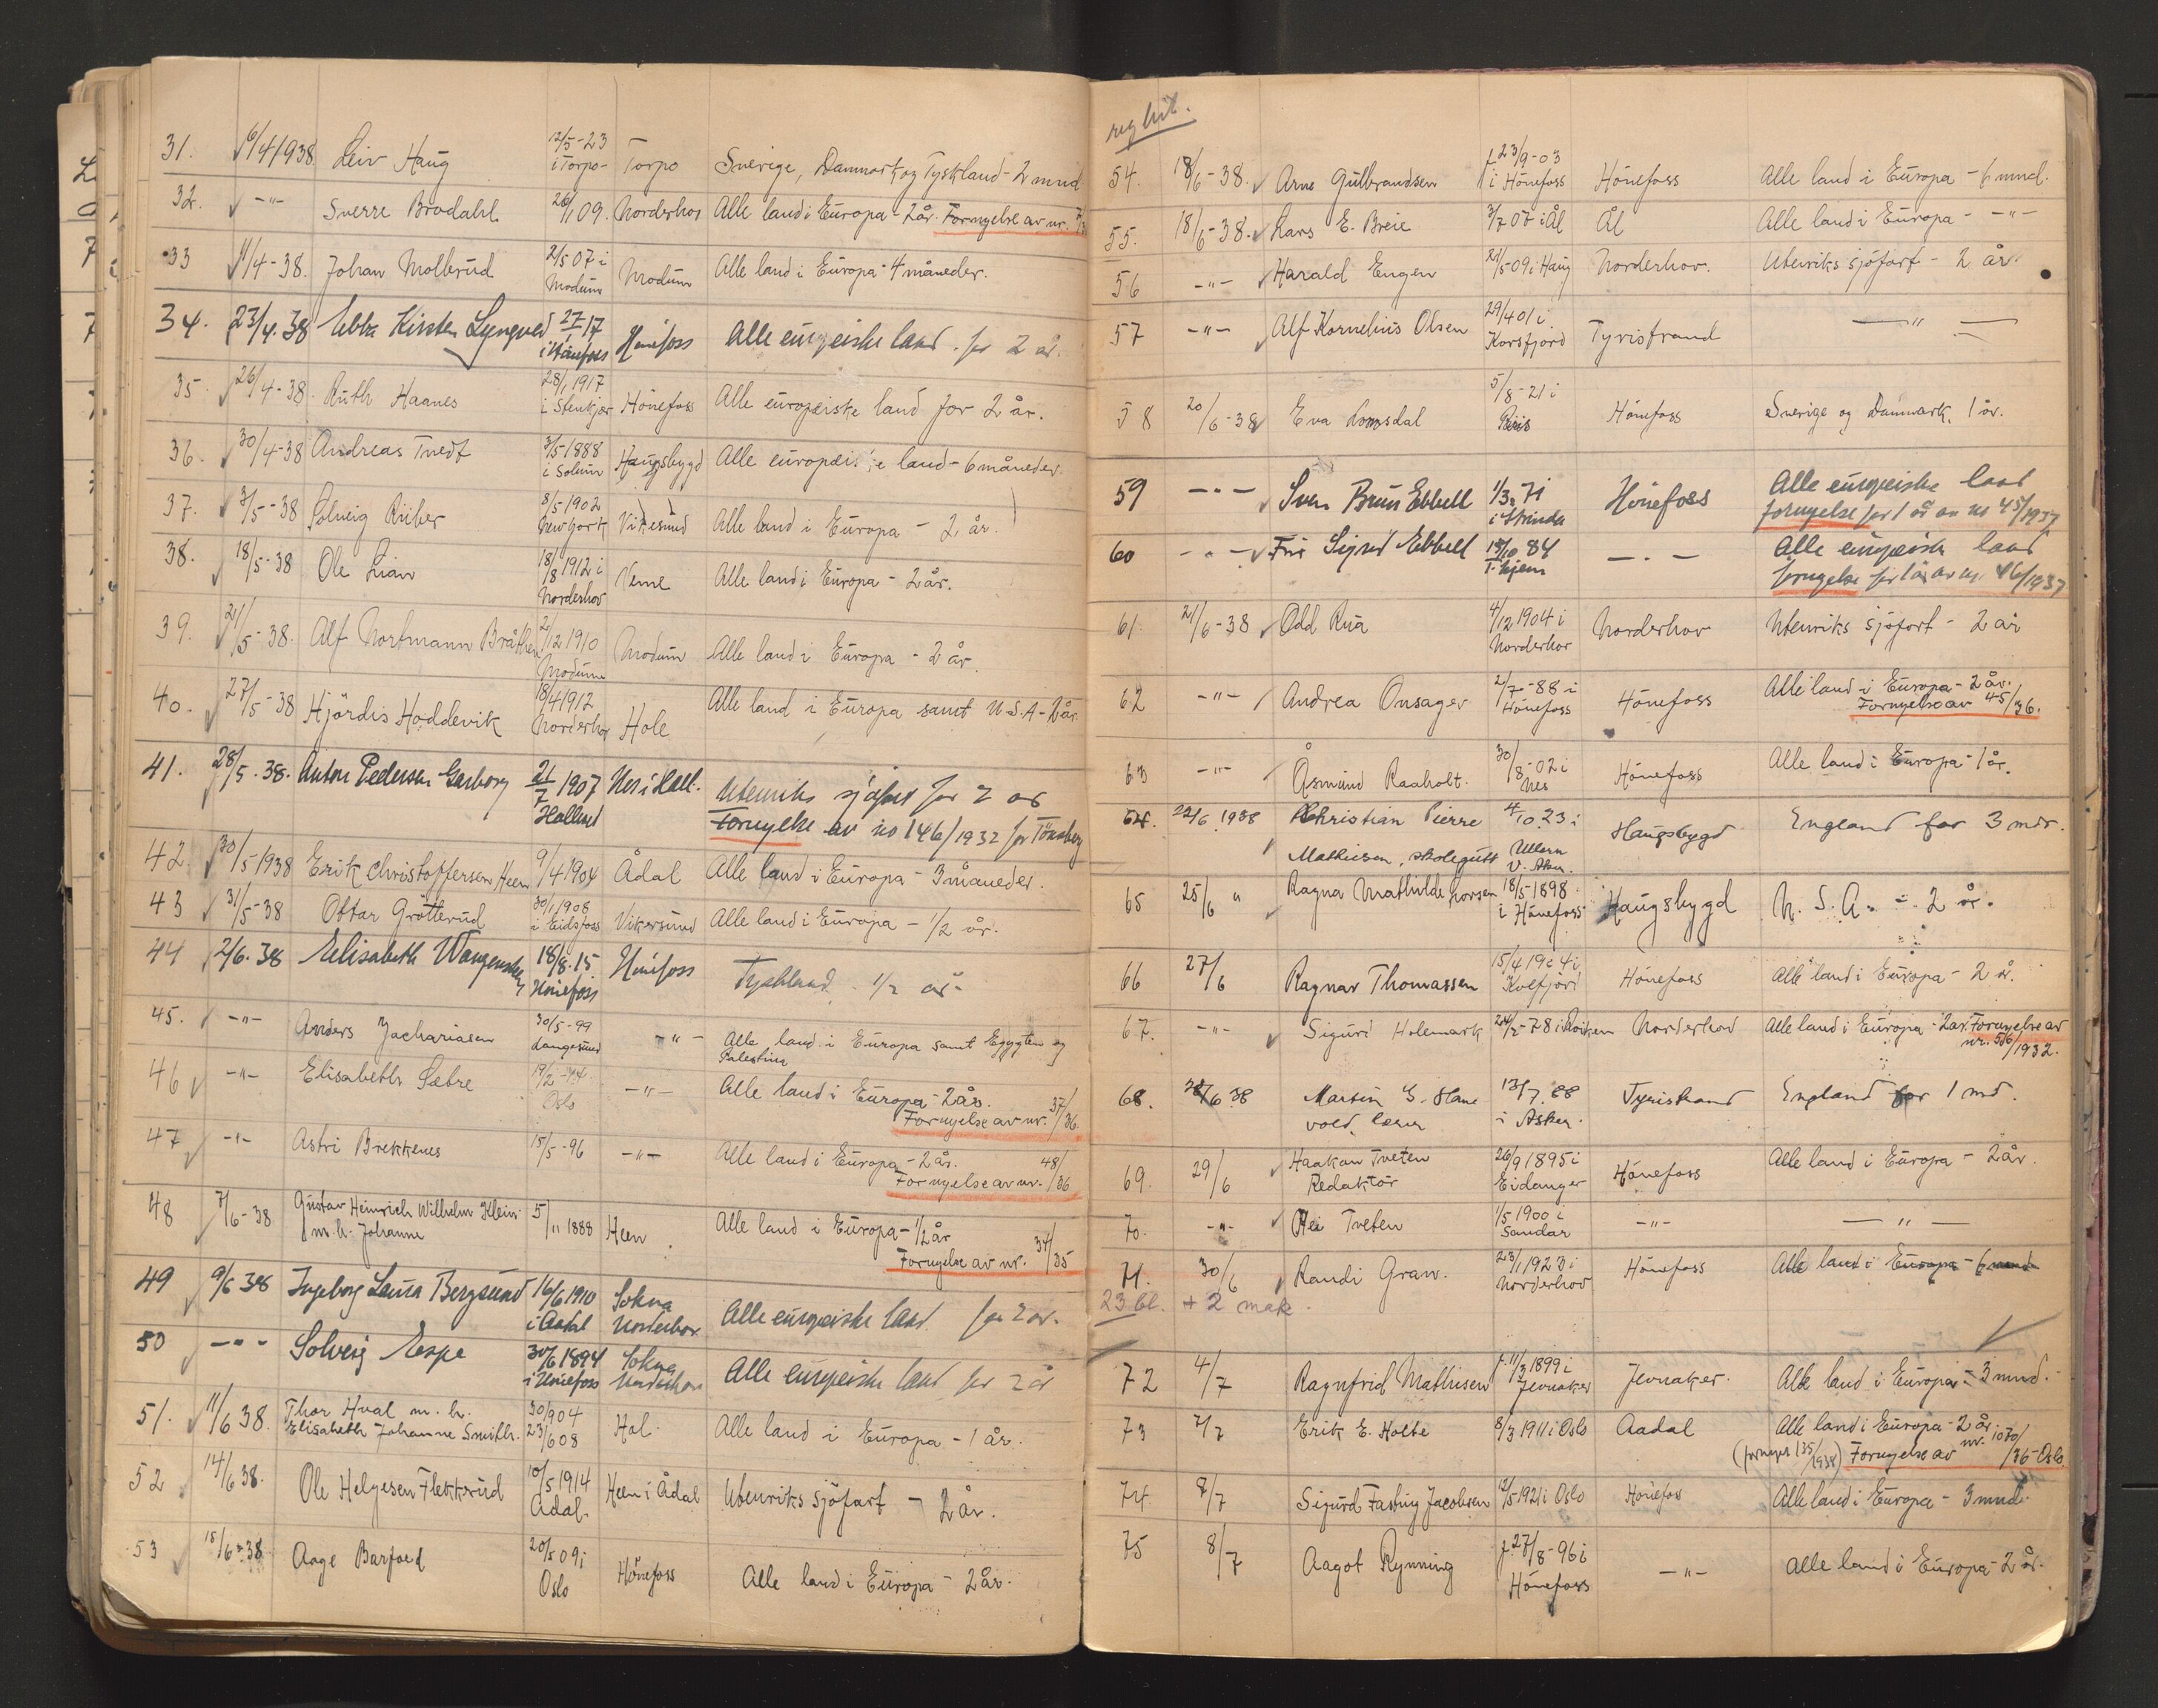 31. 6/4 1938 Leiv Haug 12/5-23 i Torpo- Torpo Sverige, Danmark og Tyskland - 2 mnd
32. -"- Sverre Brodahl 26/1 09. Norderhov Alle land i Europa - 2 år. Fornyelse av nr.
33 11/4-38. Johan Molbrud 2/5 07 i Modum Modum Alle land i Europa - 4 måneder.
34. 23/4.38 Ebba Kirsten 27/1 17 i Hönefoss Hönefoss Alle europeiske land for 2 år.
35. 26/4-38. Ruth Haanes 28/1 1917 i Stenkjær Hönefoss Alle europæiske land for 2 år.
36. 30/4-38 Andreas Tvedt 3/5-1888 i Solum Haugsbygd Alle europæiske land - 6 måneder.
37. 3/5-38 Solveig Riiber 8/5-1902 New York Vikesund Alle land i Europa - 2 år.
38. 18/5-38 Ole Lian 18/8 1912 i Norderhov Veme Alle land i Europa - 2 år.
39. 21/5-38. Alf Nortmann Bråthen 2/12 1910 Modum Modum Alle land i Europa - 2 år.
40. 27/5-38 Hjördis Hoddevik 18/4 1912 Norderhov Hole Alle land i Europa samt U-S-A - 2 år.
41. 28/5.38. Anton Pedersen Garborg 21/7 1907 Nes i Hall. Utenriks sjöfart for 2 år
fornyelse av no 146/1932 for Tönsberg
42. 30/5 1938 Erik Christoffersen Heen 9/4 1904 Ådal Alle land i Europa - 3 måneder.
43 31/5-38 Ottar Grötterud 30/1 1908 i Eidsfoss Vikersund Alle land i Europa - 1/2 år.
44 2/6.38 Elisabeth 18/8.15. Hönefoss Hönefoss Tyskland 1/2 år.
45. -"- Anders Zachariasen 30/5-99 Langesund -"- Alle land i Europa samt Egypten og
Palestina
46 -"- Elisabeth Sætre 19/2 Oslo -"- Alle land i Europa - 2 år.
Fornyelse av nr. 37/36.
47 -"- Astri Brekkenes 15/5-96 -"- Alle land i Europa - 2 år.
Fornyelse av nr. 48/36
48 7/6-38 Gustav Heinrich Wilhelm Klein
m.h. Johanne 5/11 1888 Heen Alle land i Europa - 1/2 år
Fornyelse av nr. 34/35
49 9/6 38 Ingeborg Laura Bergsund 16/6 1910 i Aadal Sokna Norderhov. Alle europeiske land for 2 år.
50 -"- Solveig Espe 30/6 1894 i Hönefoss Sokna Norderhov Alle europeiske land for 2 år
51. 11/6 38. Thor Hval m.h. 30/9 04
Elisabeth Johanne Smith. 23/6 08 Hol. Alle land i Europa - 1 år.
52 14/6 38. Ole Helgesen Flekkerud 10/5 1914 Ådal. Heen i Ådal Utenriks sjöfart - 2 år.
53 15/6-38 Aage Barfoed 20/5 09 i Oslo Hönefoss Alle land i Europa - 2 år.
54. 18/6-38. Arne Gulbrandsen f. 23/9-03 i Hönefoss Hönefoss Alle land i Europa - 6 mnd.
55. 18/6-38. Lars E. Breie 3/7 07 i Ål Ål Alle land i Europa - -"-
56 -"- Harald Engen 21/5-09 i Haug Norderhov. Utenriks sjöfart - 2 år.
57 -"- Alf Kornelius Olsen 29/4 01 i Korsfjord Tyristrand -"-
58 20/6-38 Eva Lomsdal 5/8-21 i Hönefoss Sverige og Danmark. 1 år.
59 -"- Sven Bruun Ebbell 1/3 71 i Strinda Hönefoss Alle europeiske land
fornyelse for 1 år av no 45/1937
60 -"- Fru Sigrid Ebbell 18/10 84 T.hjem -"- Alle europeiske land
fornyelse for 1 år av no. 46/1937
61. 21/6-38 Odd Rua 4/12 1904 i Norderhov Norderhov Utenriks sjöfart - 2 år
62 -"- Andrea Onsager 2/7-88 i Hönefoss Hönefoss Alle land i Europa - 2 år.
Fornyelse av 45/36.
63 -"- Åsmund Raaholt. 30/8-02 i Nes Hönefoss Alle land i Europa - 1 år.
64. 22/6 1938 Christian Pierre
Mathiesen, skolegutt 4/10.23 i Ullern V. Aker. Haugsbygd England for 3 mdr.
65 25/6 " Ragna Mathilde Larsen 18/5-1898 i Hönefoss Haugsbygd U.S.A. - 2 år.
66 27/6 Ragnar Thomassen 15/4 1904 i Hönefoss Alle land i Europa - 2 år.
67. -"- Sigurd Holemark 24/2-78 i Röiken Norderhov Alle land i Europa - 2 år. Fornyelse av
nr. 56/1932.
68. 28/6 38 Martin G. Hane
vold. lærer 13/7.88 i Asker. Tyristrand England for 1 md.
69. 29/6 Haakon Tveten
Redaktör 26/9 1895 i Eidanger Hönefoss Alle land i Europa - 2 år.
70. -"- Tveten 1/5 1900 i Sandar -"- -"-
71. 30/6 Randi Gran. 23/1 1923 i Norderhov Hönefoss Alle land i Europa - 6 mnd
23 bl. + 2 mak.
72 4/7 Ragnfrid Mathisen f. 11/3 1899 i Jevnaker Jevnaker. Alle land i Europa - 3 mnd.
73 7/7 Erik E. Holte 8/3 1911 i Oslo Aadal Alle land i Europa - 2 år.
(fornyes 135/1938) Fornyelse av nr. 1070/36-Oslo.
74. 8/7 Sigurd Fasting Jacobsen 12/5 1921 i Oslo Hönefoss Alle land i Europa - 3 mnd.
75 8/7 Aagot Rynning f. 27/8-96 i Hönefoss -"- Alle land i Europa - 2 år.